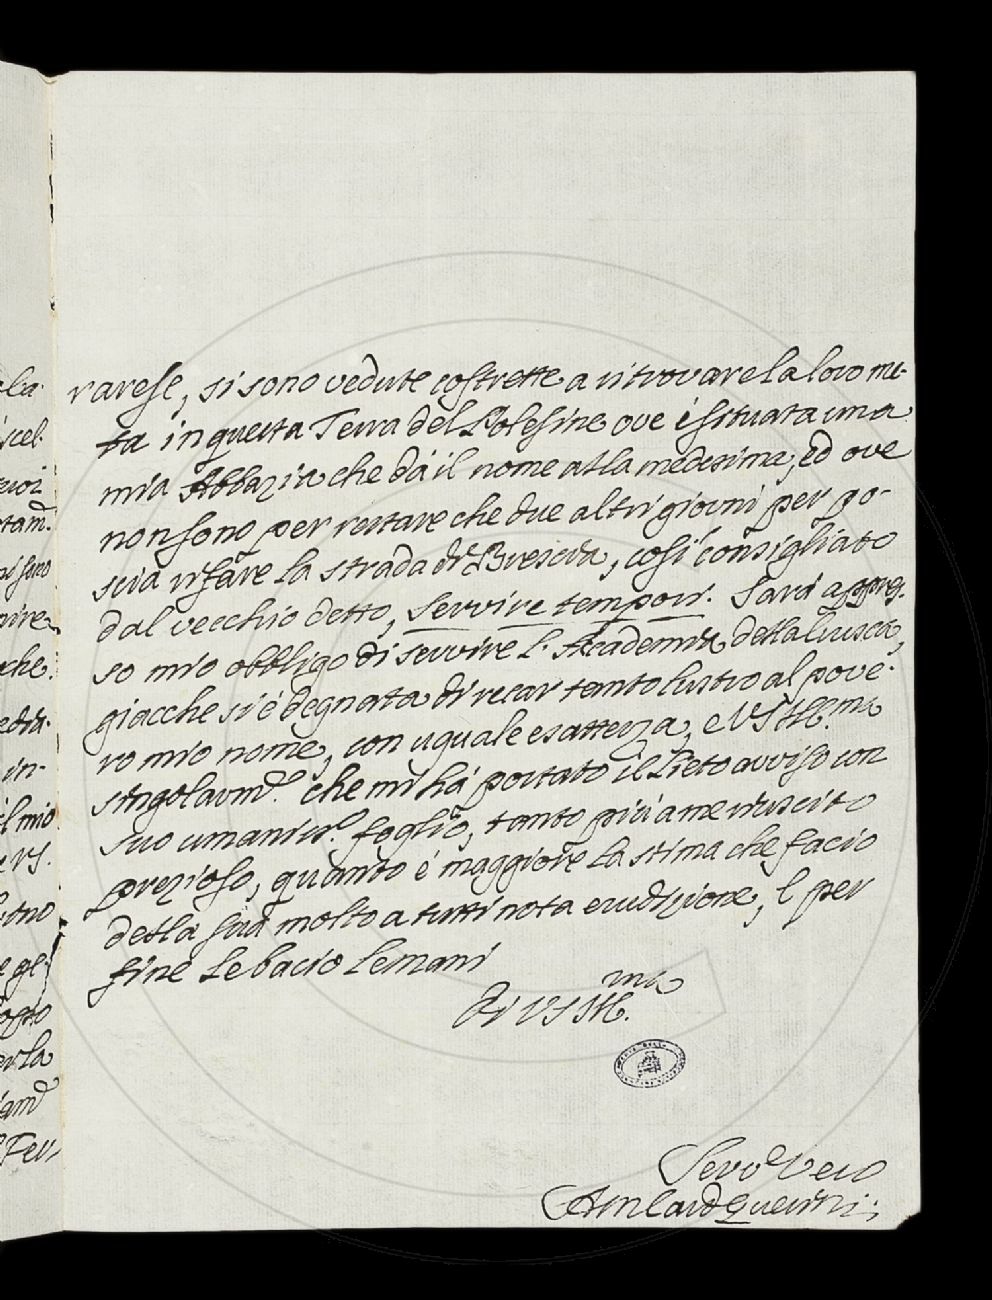 rarese, si sono vedute costrette a ritrovare la loro me-
ta in questa Terra del Polesine ove è situata una
mia Abbazia che dà il nome alla medesima, ed ove
non sono per restare che due altri giorni per po-
scia rifare la strada di Brescia, così consigliato
dal vecchio detto, servire tempori. Sarà appres-
so mio obbligo di servire l'Accademia della Crusca,
giacche si è degnata di recar tanto lustro al pove-
ro mio nome, con uguale esattezza, e VS Ill.ma
singolarm.e che mi hà portato il lieto avviso con
suo umaniss.o foglio, tanto più a me riuscito
prezioso, quanto è maggiore la stima che facio
della sua molto a tutti nota erudizione, e per
fine le bacio le mani
Di VS Ill.ma
Serv.e Vero
A M Card Querini